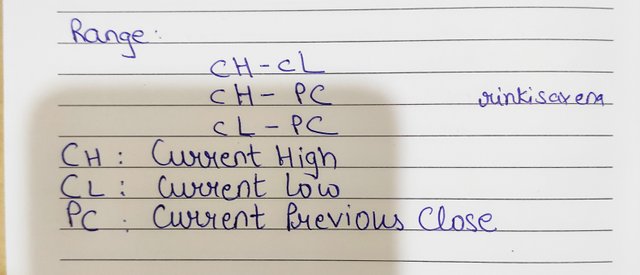 Range:
CH - CL
CH - PC rinkisaxena
CL - PC
CH : Current High
CL : Current Low
PC : Current Previous Close